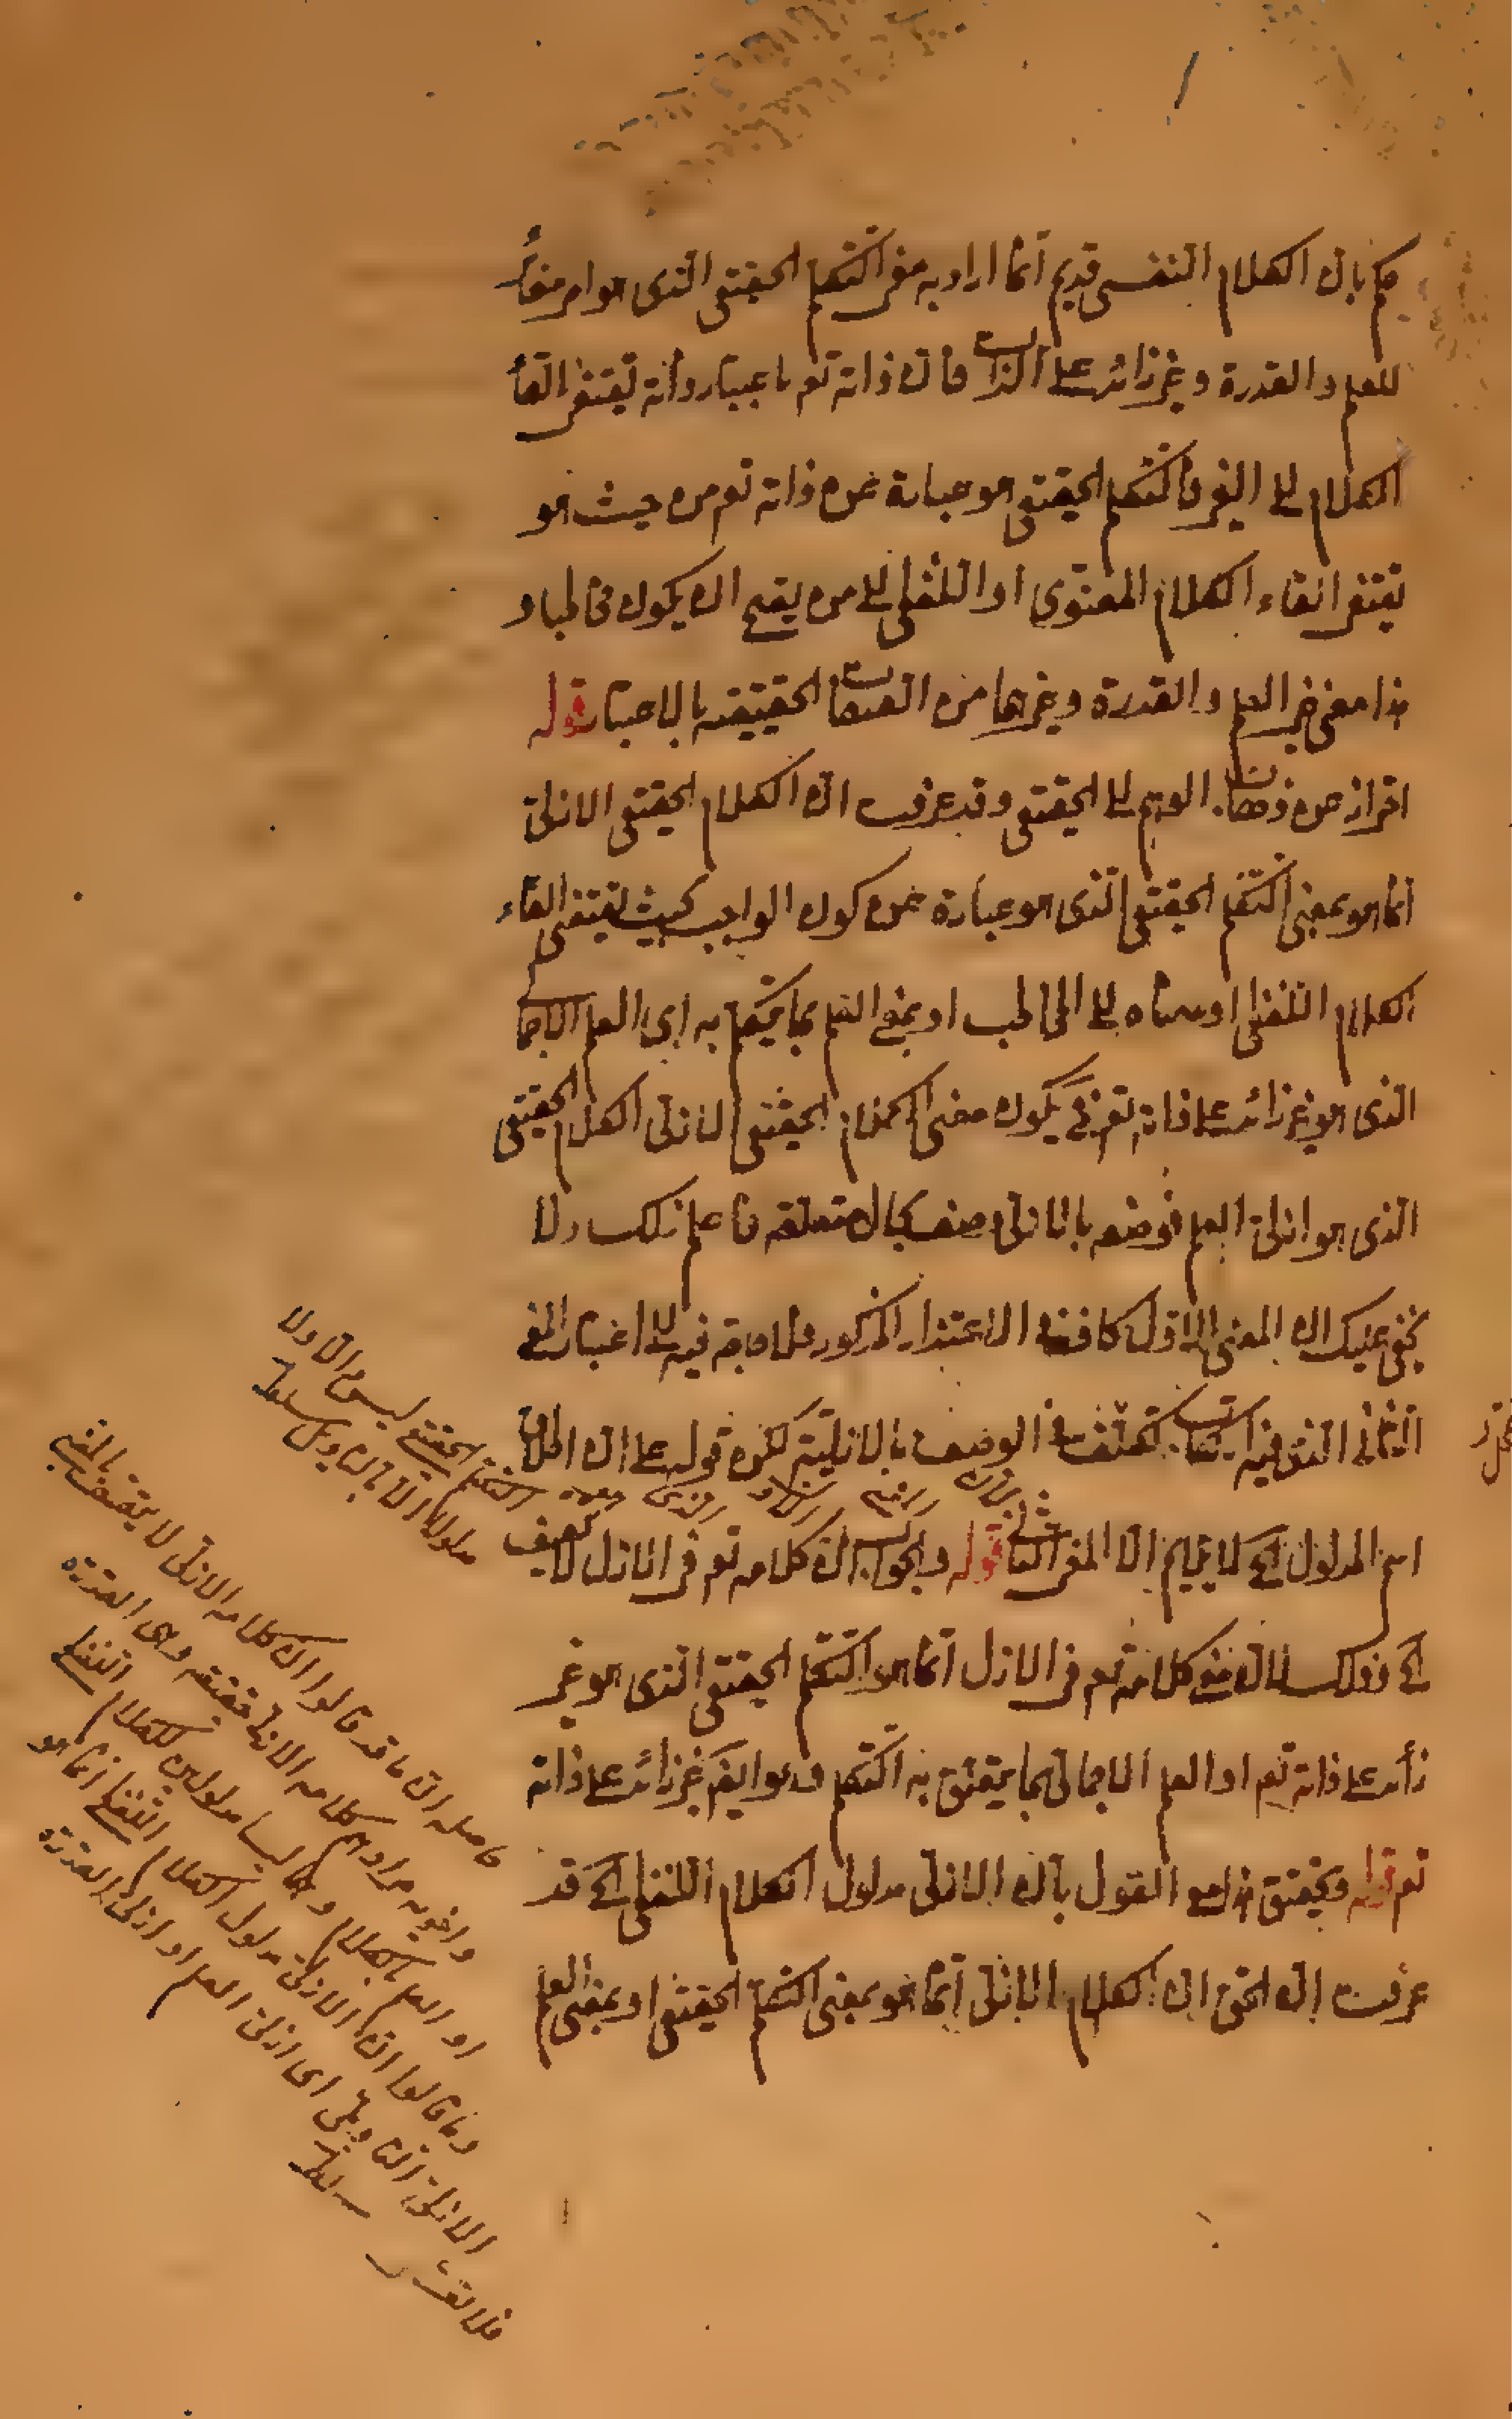 حكم بان الكلام النفسى قديم انما اراد به معنى التكلم الحقيقى الذى هو امر مغاير
للعلم والقدرة وغير زائد على الذات فان ذاته تعم باعتبار انه يقتضى القاء
الكلام الى الغير فالتكلم الحقيقى هو عبارة عن ذاته تعم من حيث هو
يقتضى القاء الكلام المعنوى او اللفظى الى من يصح ان يكون مخاطبا و
هذا معنى غير العلم والقدرة وغيرها من الصفات الحقيقية بالاعتبار قوله
احتراز عن ذهاب الوهم الى الحقيقى وقد عرفت ان الكلام الحقيقى الازلى
انما هو بمعنى التكلم الحقيقى الذى هو عبارة عن كون الواجب بحيث يقتضى القاء
الكلام اللفظى او معناه الى المخاطب او بمعنى العلم بما يتكلم به اى العلم الاجمالى
الذى هو غير زائد على ذاته تعم فح يكون معنى الكلام الحقيقى الازلى الكلام الحقيقى
الذى هو ازلى العلم فوصفه بالازلى وصف بحال متعلقه فاعلم ذلك ولا
يخفى عليك ان المعنى الاول كاف فى الاعتذار المذكور فلا حاجة فيه الى اعتبار المعنى
الثانى الذى فيه ارتكاب تكلف فى الوصف بالازلية لكن قوله على ان اطلاق
اسم المدلول الخ لا يلايم الا المعنى الثانى قوله والجواب ان كلامه تعم فى الازل لا يتصف
الخ وذلك لان معنى كلامه تعم فى الازل انما هو التكلم الحقيقى الذى هو غير
زائد على ذاته تعم او العلم الاجمالى بما يتعلق به التكلم وهو ايضا غير زائد على ذاته
تعم قوله وتحقيق هذا مع القول بان الازلى مدلول الكلام اللفظى الخ قد
عرفت ان الحق ان الكلام الازلى انما هو بمعنى التكلم الحقيقى او بمعنى العلم
التكلم الحقيقى ليس الا ولا
مدلولا الا بالتأويل
حاصله ان ما قد قالوا ان كلامه الازلى لا يتصف بالمضى
واخويه مرادهم كلامه الازلى حقيقة وهى القدرة
او العلم بالكلام وهما ليسا مدلولين للكلام اللفظى
وما قالوا ان الازلى مدلول الكلام اللفظى انما هو
الازلى التأويلى اى ازلى العلم او ازلى القدرة
فلا تغفل